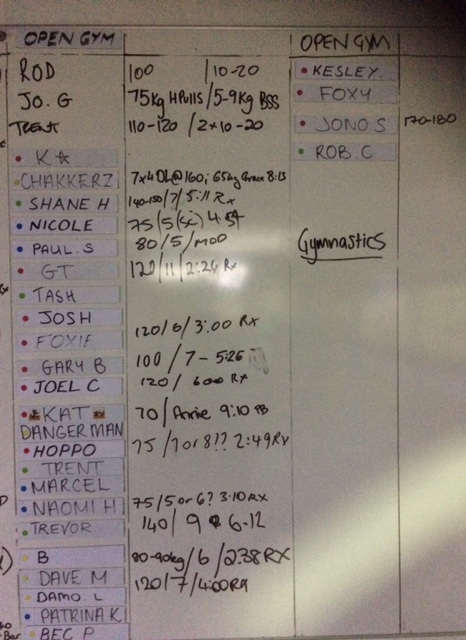 OPEN GYM
ROD 100 /10-20
JO. G 75kg HPulls/5-9kg BSS
TRENT 110-120 /2x10-20
K
CHAKKERZ 7x4 DL@160; 65kg Grace 8:13
SHANE H 140-150/7/5:11 Rx
NICOLE 75/5(4)
PAUL. S 80/5/MOD
GT 120/11/2:26 Rx
TASH
JOSH 120/6/3:00 RX
FOXIE
GARY B 100/7-5:26
JOEL C 120/ 600 RX
KAT 70/Annie 9:10 PB
DANGERMAN
HOPPO 75/7 or 8?? 2:49RX
TRENT
MARCEL
NAOMI H 75/5 or 6? 3:10 RX
TREVOR 140/9 6-12
B 80-90kg/6/2:38 RX
DAVE M 120/7/4:00
DAMO. L
PATRINA K
BEC P
Bar
OPEN GYM
KESLEY
FOXY
JONO S 170-180
ROB. C
Gymnastics